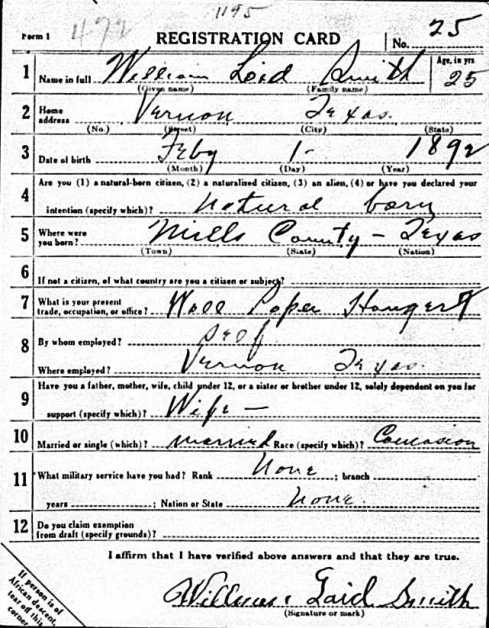 1195
Form 1 472 REGISTRATION CARD No. 25
1 Name in full William Loid Smith Age, in yrs 25
(Given name) (Family name)
2 Home address Vernon Texas.
(No.) (Street) (City) (State)
3 Date of birth Feby 1- 1892
(Month) (Day) (Year)
4 Are you (1) a natural-born citizen, (2) a naturalized citizen, (3) an alien, (4) or have you declared your
intention (specify which)? Natural born
5 Where were you born? Mills County - Texas
(Town) (State) (Nation)
6 If not a citizen, of what country are you a citizen or subject?
7 What is your present trade, occupation, or office? Wall Paper Hanger
8 By whom employed? Self
Where employed? Vernon Texas.
9 Have you a father, mother, wife, child under 12, or a sister or brother under 12, solely dependent on you for
support (specify which)? Wife -
10 Married or single (which)? married Race (specify which)? Caucasion
11 What military service have you had? Rank None ; branch
years ; Nation or State None.
12 Do you claim exemption from draft (specify grounds)?
I affirm that I have verified above answers and that they are true.
William Laid Smith
(Signature or mark)
If person is of
African descent,
tear off this
corner